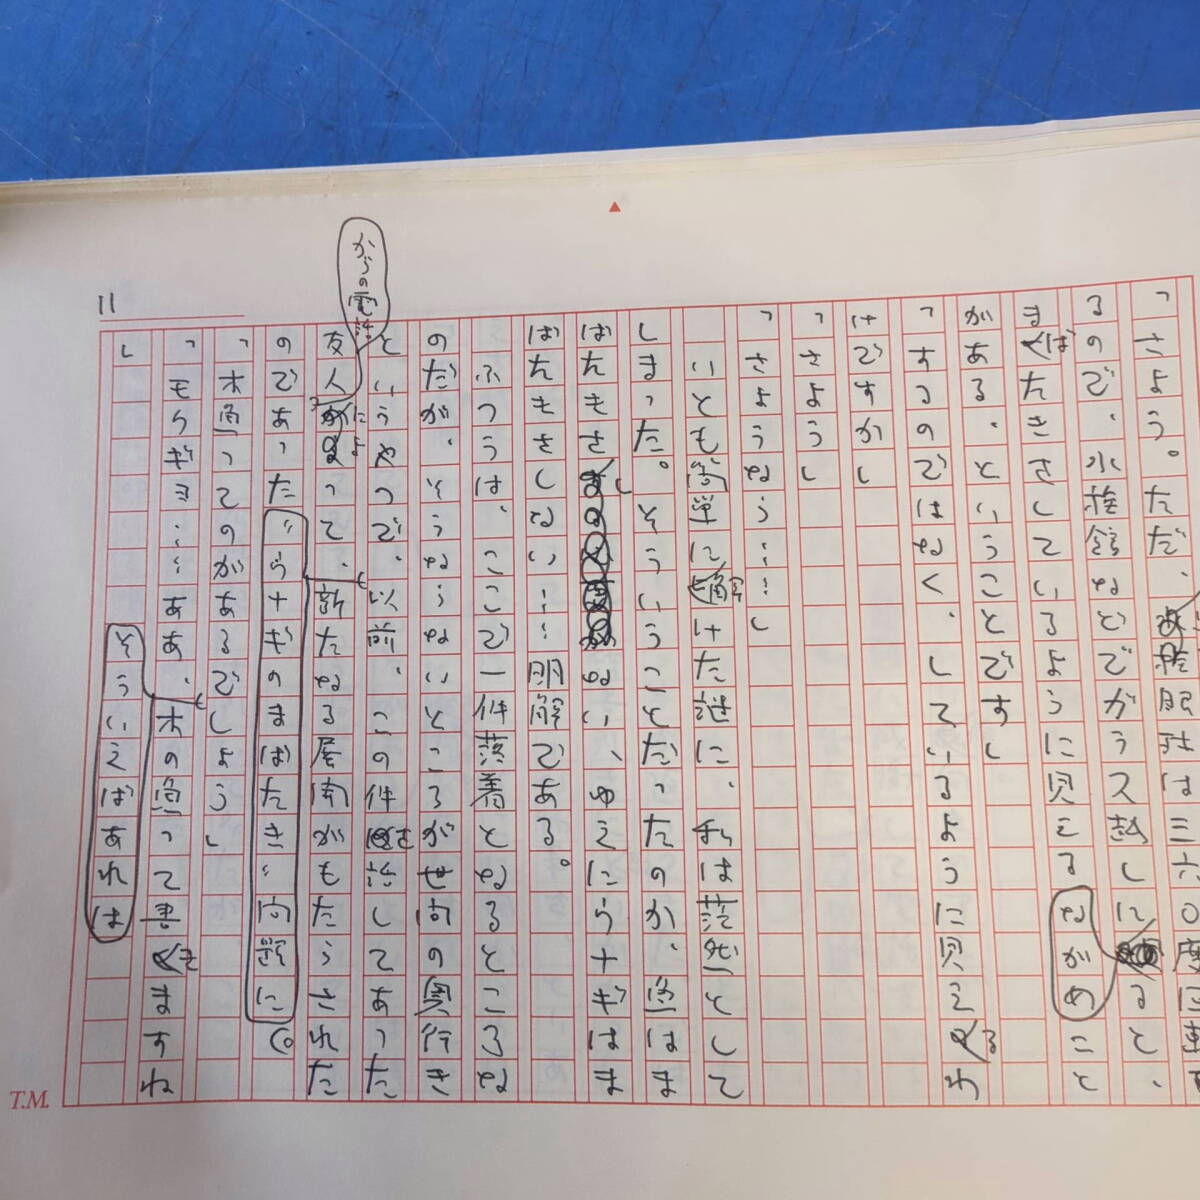 「さよう。ただ、
眼球は三六〇度に
るので、水族館などでガラス越しに
ながめると、
まばたきさしているように見えること
がある、ということです」
「するのではなく、しているように見えるわ
けですか」
「さよう」
「さような、う……」
いとも簡単に解けた謎に、私は茫然として
しまった。そういうことだったのか、魚はま
ばたきさしない、ゆえにうナギはま
ばたきさしない……明解である。
ふつうは、ここで一件落着となるところな
のだが、そうならないところが世間の奥行き
というやつで、以前、この件を話してあった
友人からの電話によって、新たなる展開がもたらされた
のであった。
〝うナギのまばたき〟問題に
「木魚ってのがあるでしょう」
「モクギョ……ああ、
そういえばあれは
木の魚って書きますね
」
11
T.M.